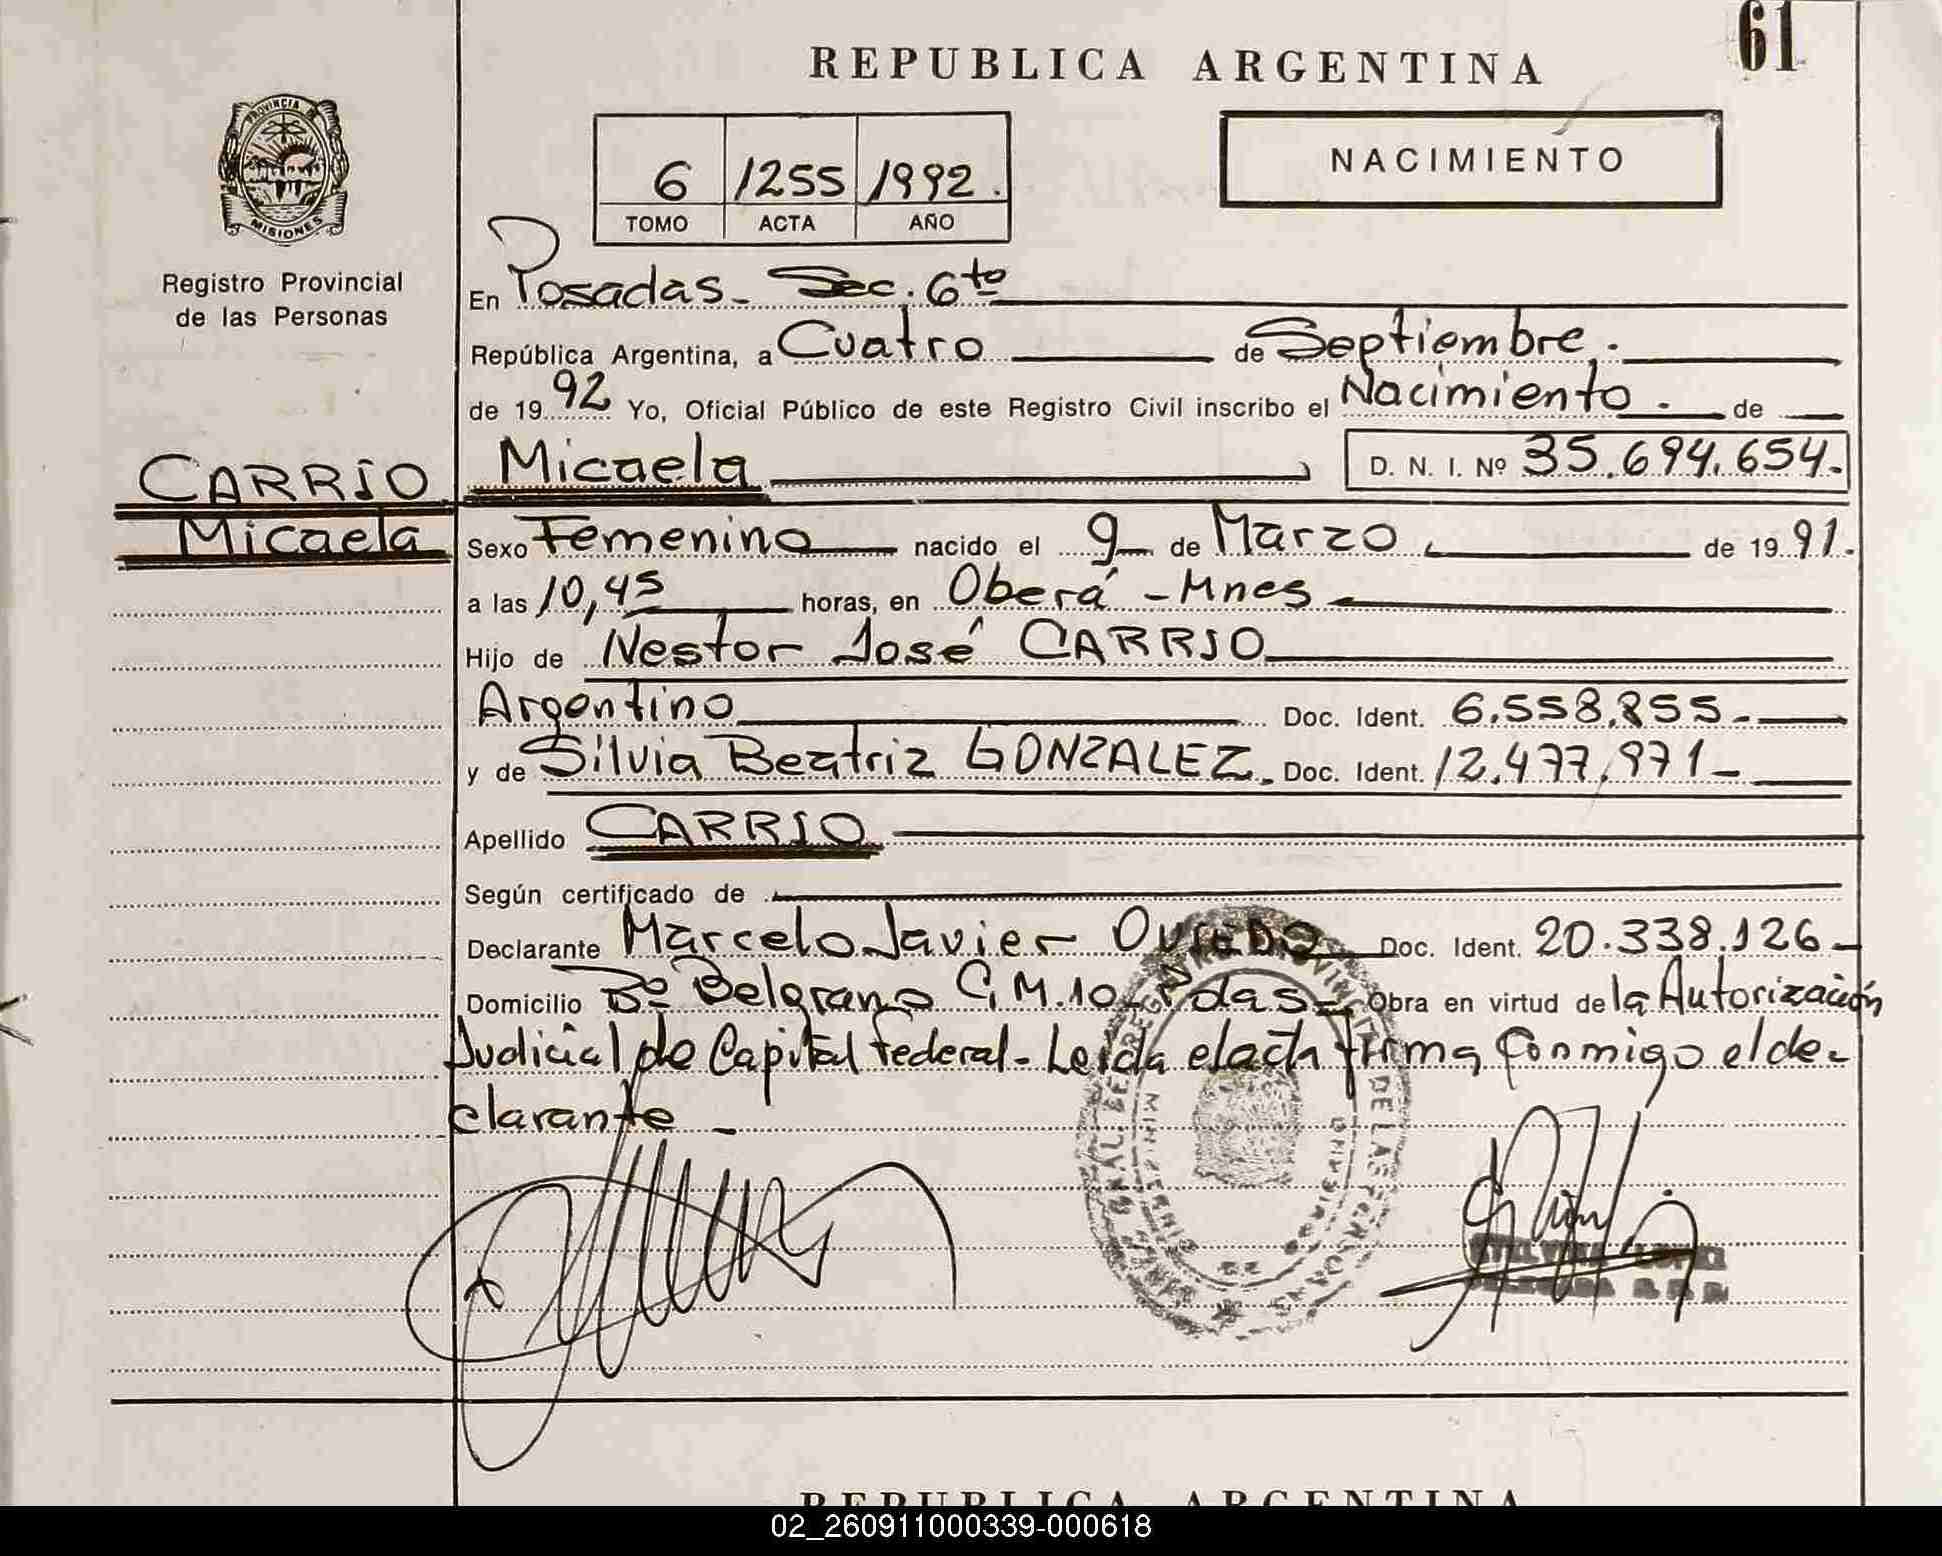 REPUBLICA ARGENTINA
61
PROVINCIA
MISIONES
Registro Provincial
de las Personas
6 1255 1992.
TOMO ACTA AÑO
NACIMIENTO
En Posadas - Sec. 6to
República Argentina, a Cuatro de Septiembre.
de 1992 Yo, Oficial Público de este Registro Civil inscribo el Nacimiento. de
CARRIO
Micaela
Micaela D. N. I. Nº 35.694.654.
Sexo Femenino nacido el 9 de Marzo de 1991.
a las 10,45 horas, en Oberá - Mnes
Hijo de Nestor José CARRIO
Argentino Doc. Ident. 6.558.855.-
y de Silvia Beatriz GONZALEZ. Doc. Ident. 12.477.971-
Apellido CARRIO
Según certificado de
Declarante Marcelo Javier OVIEDO Doc. Ident. 20.338.126-
Domicilio Bº Belgrano C. M.10 - Pdas - Obra en virtud de la Autorización
Judicial de Capital Federal - Leida el acta firma conmigo el de-
clarante -
REPUBLICA ARGENTINA
02_260911000339-000618